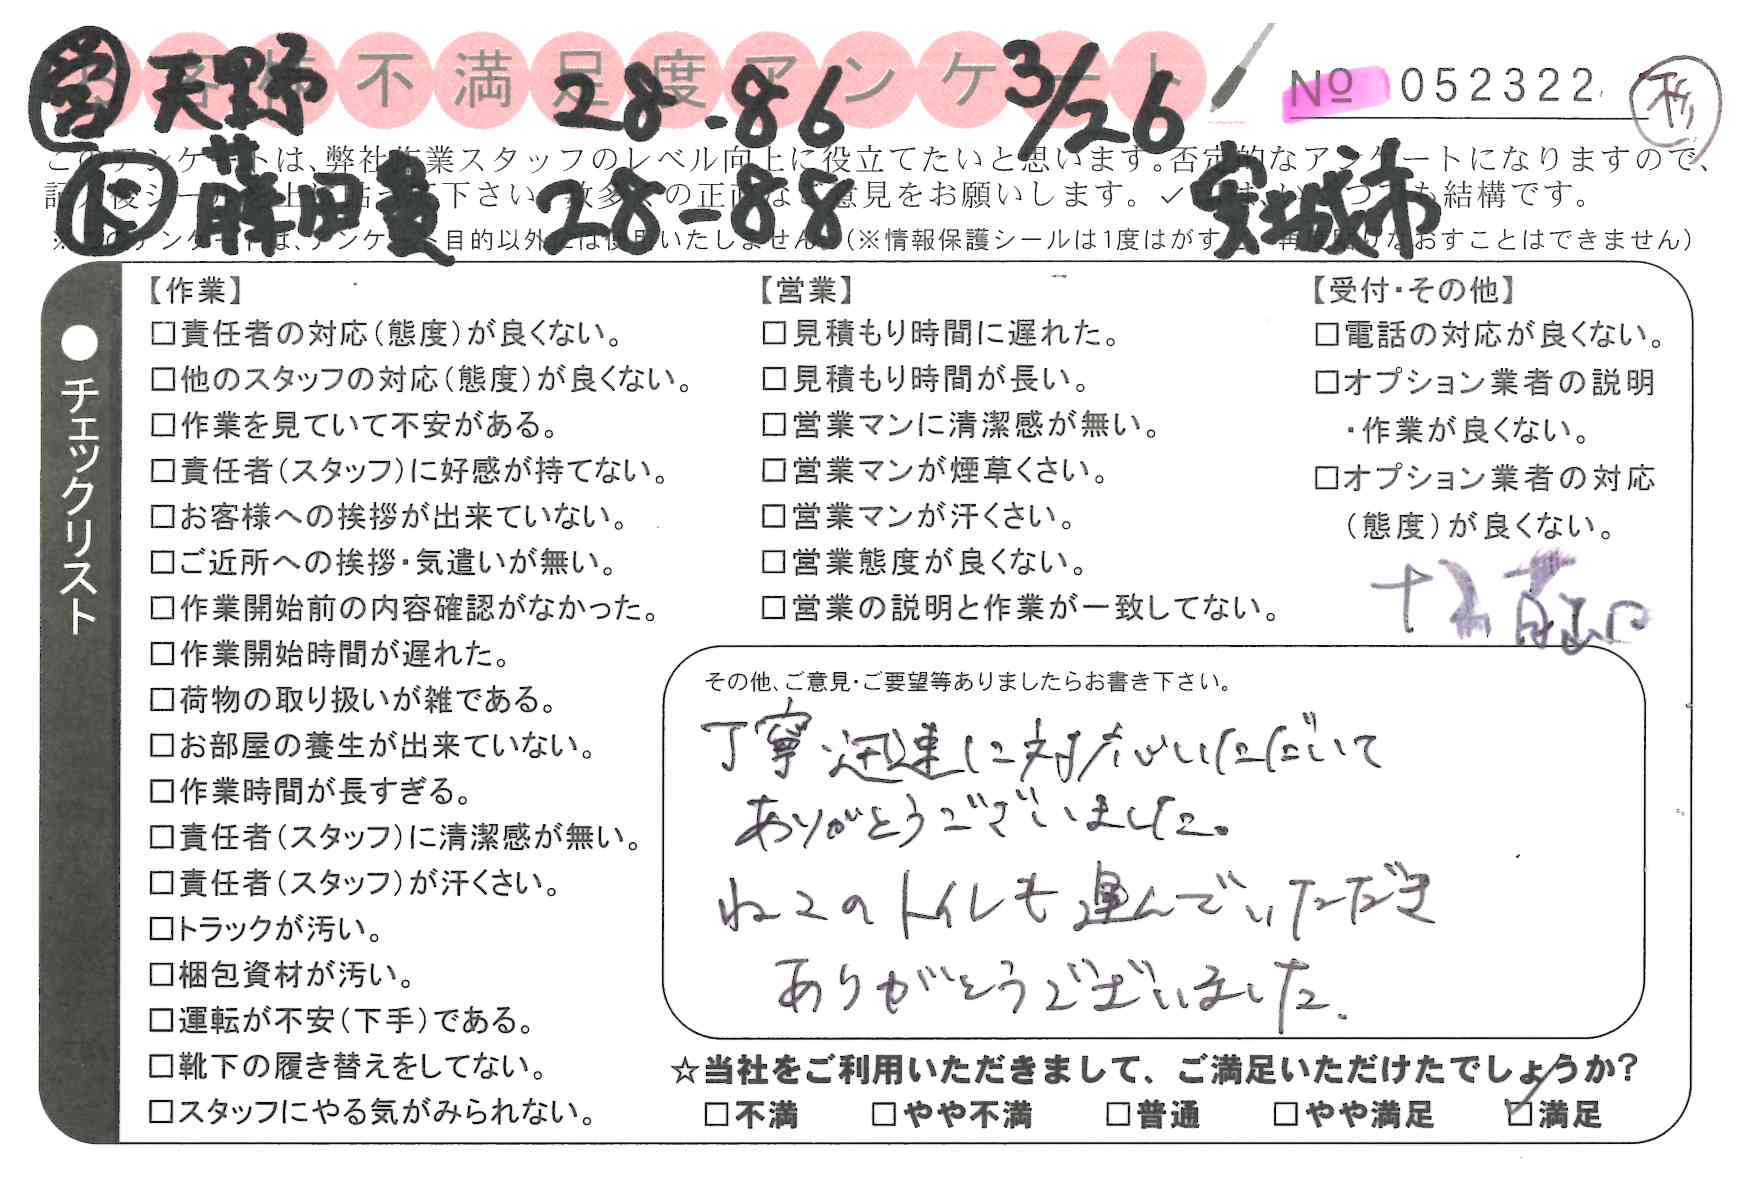 お客様不満足度アンケート
営 天野 28-86 3/26
№ 052322
このアンケートは、弊社作業スタッフのレベル向上に役立てたいと思います。否定的なアンケートになりますので、
ド 藤田貴 28-88 安城市
下さい。 意見をお願いします。 結構です。
目的以外には使用いたしません。(※情報保護シールは1度はがすと、再度貼りなおすことはできません)
●チェックリスト
【作業】
□責任者の対応(態度)が良くない。
□他のスタッフの対応(態度)が良くない。
□作業を見ていて不安がある。
□責任者(スタッフ)に好感が持てない。
□お客様への挨拶が出来ていない。
□ご近所への挨拶・気遣いが無い。
□作業開始前の内容確認がなかった。
□作業開始時間が遅れた。
□荷物の取り扱いが雑である。
□お部屋の養生が出来ていない。
□作業時間が長すぎる。
□責任者(スタッフ)に清潔感が無い。
□責任者(スタッフ)が汗くさい。
□トラックが汚い。
□梱包資材が汚い。
□運転が不安(下手)である。
□靴下の履き替えをしてない。
□スタッフにやる気がみられない。
【営業】
□見積もり時間に遅れた。
□見積もり時間が長い。
□営業マンに清潔感が無い。
□営業マンが煙草くさい。
□営業マンが汗くさい。
□営業態度が良くない。
□営業の説明と作業が一致してない。
【受付・その他】
□電話の対応が良くない。
□オプション業者の説明
・作業が良くない。
□オプション業者の対応
(態度)が良くない。
その他、ご意見・ご要望等ありましたらお書き下さい。
丁寧、迅速に対応いただいて
ありがとうございました。
ねこのトイレも運んでいただき
ありがとうございました。
☆当社をご利用いただきまして、ご満足いただけたでしょうか?
□不満 □やや不満 □普通 □やや満足 ☑満足